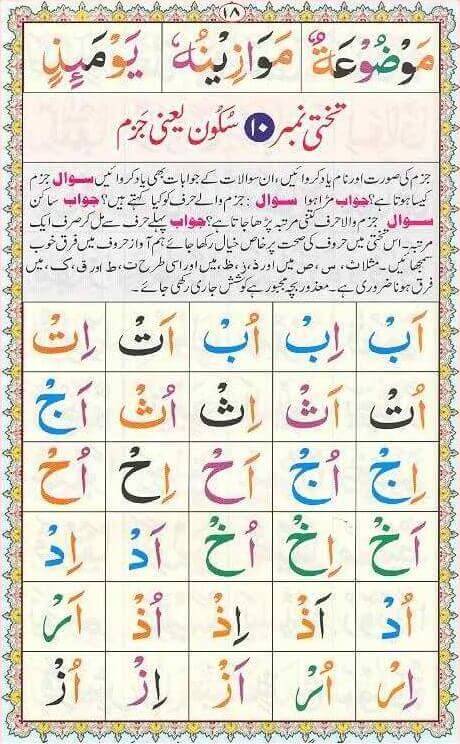 ١٨
مَوْضُوْعَةٌ مَوَازِيْنُهٗ يَوْمَئِذٍ
تختی نمبر ١٠ سکون یعنی جزم
جزم کی صورت اور نام یاد کروائیں، ان سوالات کے جوابات بھی یاد کروائیں سوال جزم
کیسا ہوتا ہے؟ جواب مڑا ہوا سوال : جزم والے حرف کو کیا کہتے ہیں؟ جواب ساکن
سوال جزم والا حرف کتنی مرتبہ پڑھا جاتا ہے؟ جواب پہلے حرف سے مل کر صرف ایک
مرتبہ۔ اس تختی میں حروف کی صحت پر خاص خیال رکھا جائے ہم آواز حروف میں فرق خوب
سمجھائیں۔ مثلا ث، س، ص میں اور ذ، ز، ظ، میں اور اسی طرح ت، ط اور ق، ک، میں
فرق ہونا ضروری ہے۔ معذور بچہ مجبور ہے کوشش جاری رکھی جائے۔
اَبْ اِبْ اُبْ اَتْ اِتْ
اُتْ اَثْ اِثْ اُثْ اَجْ
اِجْ اُجْ اَحْ اِحْ اُحْ
اَخْ اِخْ اُخْ اَدْ اِدْ
اُدْ اَذْ اِذْ اُذْ اَرْ
اِرْ اُرْ اَزْ اِزْ اُزْ